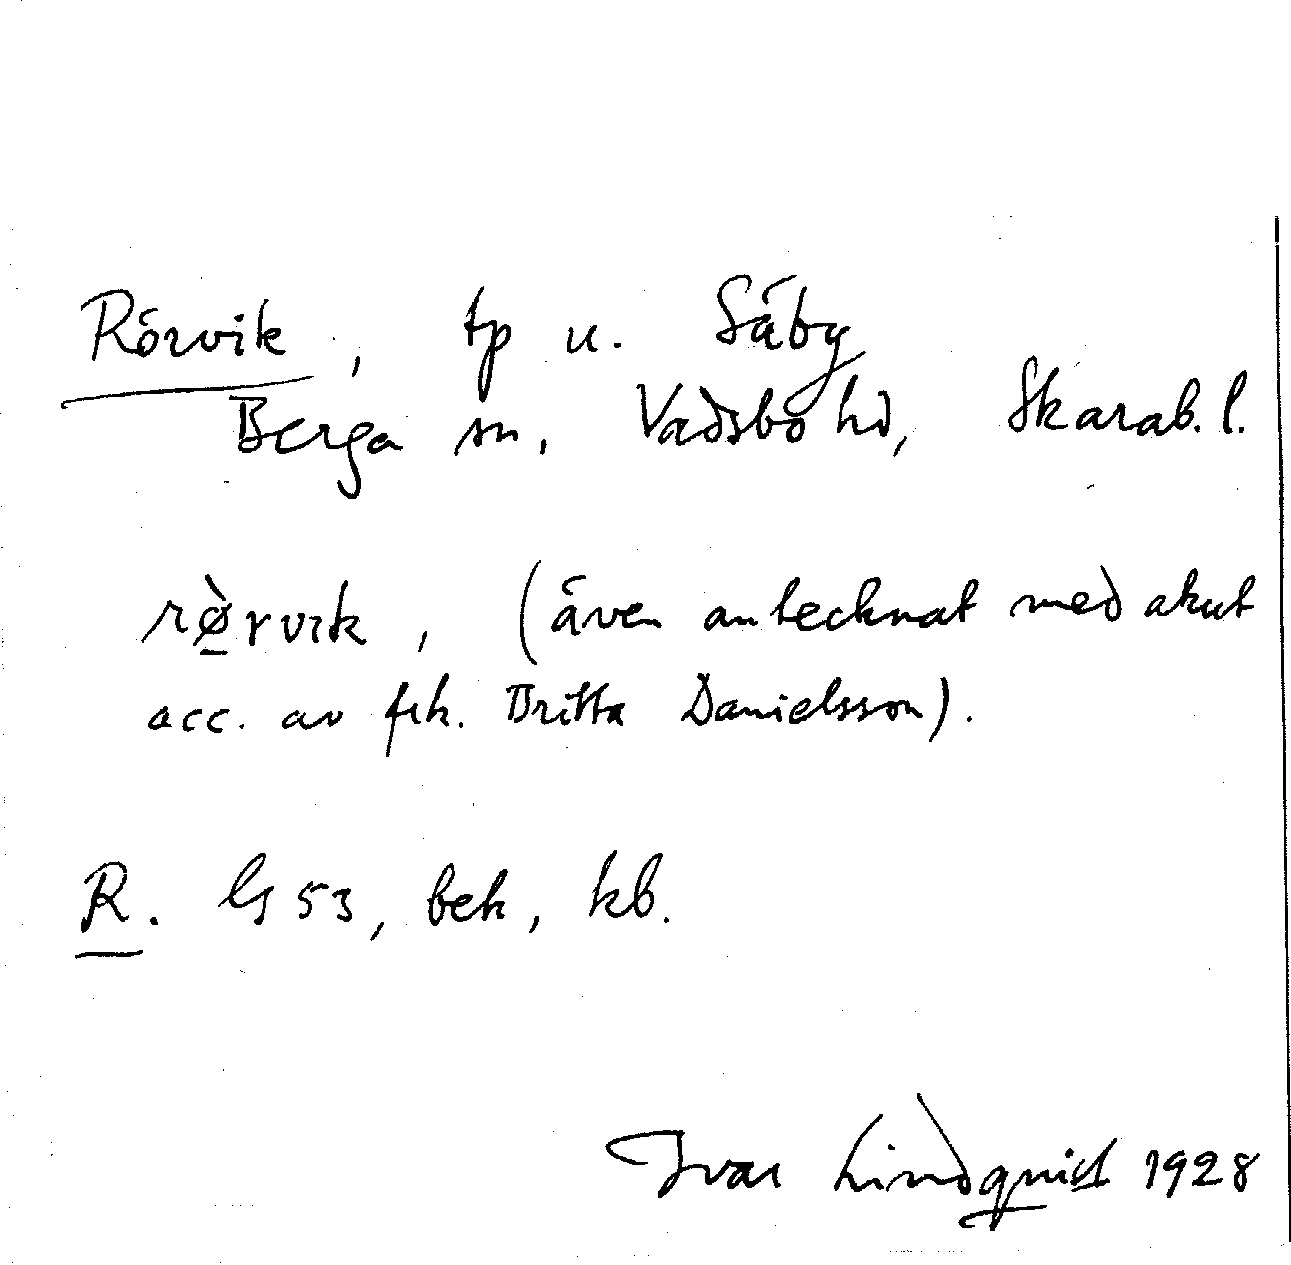 Rörvik, tp u. Säby
Berga sn, Vadsbo hd, Skarab. l.
rø̀rvik, (även antecknat med akut
acc. av frk. Britta Danielsson).
R. GS 53, bek, kb.
Ivar Lindquist 1928